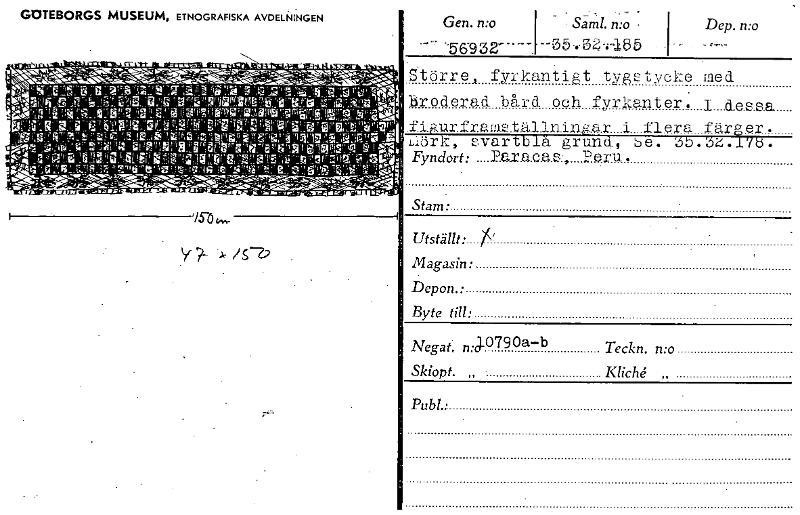 GÖTEBORGS MUSEUM, ETNOGRAFISKA AVDELNINGEN
150 cm
47 x 150
Gen. n:o Saml. n:o Dep. n:o
56932 35.32.185
Större, fyrkantigt tygstycke med
broderad bård och fyrkanter. I dessa
figurframställningar i flera färger.
Mörk, svartblå grund, Se. 35.32.178.
Fyndort: Paracas, Peru.
Stam:
Utställt: X
Magasin:
Depon.:
Byte till:
Negat. n:o 10790a-b Teckn. n:o
Skiopt. „ Kliché „
Publ.: